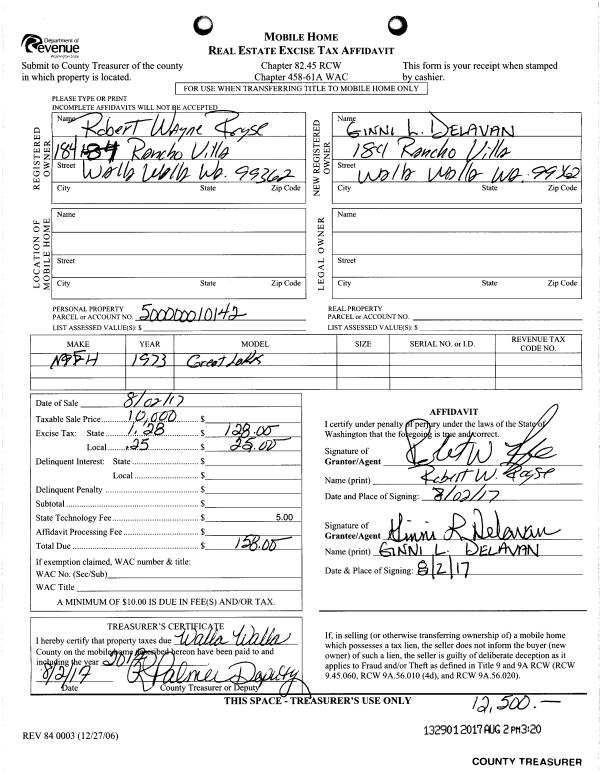 Department of
Revenue
Washington State
MOBILE HOME
REAL ESTATE EXCISE TAX AFFIDAVIT
Submit to County Treasurer of the county
in which property is located.
Chapter 82.45 RCW
Chapter 458-61A WAC
This form is your receipt when stamped
by cashier.
FOR USE WHEN TRANSFERRING TITLE TO MOBILE HOME ONLY
PLEASE TYPE OR PRINT
INCOMPLETE AFFIDAVITS WILL NOT BE ACCEPTED
REGISTERED OWNER
Name Robert Wayne Royse
184 Rancho Villa
Street Walla Walla Wa. 99362
City State Zip Code
NEW REGISTERED OWNER
Name GINNI L. DELAVAN
184 Rancho Villa
Street Walla Walla Wa. 99362
City State Zip Code
LOCATION OF MOBILE HOME
Name
Street
City State Zip Code
LEGAL OWNER
Name
Street
City State Zip Code
PERSONAL PROPERTY
PARCEL or ACCOUNT NO. 500000010142
LIST ASSESSED VALUE(S): $
REAL PROPERTY
PARCEL or ACCOUNT NO.
LIST ASSESSED VALUE(S): $
MAKE YEAR MODEL SIZE SERIAL NO. or I.D. REVENUE TAX CODE NO.
1973 Great Lakes
Date of Sale 8/02/17
Taxable Sale Price 10,000 $
Excise Tax: State 1.28 $ 128.00
Local .25 $ 25.00
Delinquent Interest: State $
Local $
Delinquent Penalty $
Subtotal $
State Technology Fee $ 5.00
Affidavit Processing Fee $
Total Due $ 158.00
If exemption claimed, WAC number & title:
WAC No. (Sec/Sub)
WAC Title
A MINIMUM OF $10.00 IS DUE IN FEE(S) AND/OR TAX.
AFFIDAVIT
I certify under penalty of perjury under the laws of the State of
Washington that the foregoing is true and correct.
Signature of
Grantor/Agent
Name (print) Robert W. Royse
Date and Place of Signing: 8/02/17
Signature of
Grantee/Agent Ginni L Delavan
Name (print) GINNI L. DELAVAN
Date & Place of Signing: 8/2/17
TREASURER'S CERTIFICATE
I hereby certify that property taxes due Walla Walla
County on the mobile home described hereon have been paid to and
including the year 2017
8/2/17 R Palmer Deputy
Date County Treasurer or Deputy
If, in selling (or otherwise transferring ownership of) a mobile home
which possesses a tax lien, the seller does not inform the buyer (new
owner) of such a lien, the seller is guilty of deliberate deception as it
applies to Fraud and/or Theft as defined in Title 9 and 9A RCW (RCW
9.45.060, RCW 9A.56.010 (4d), and RCW 9A.56.020).
THIS SPACE - TREASURER'S USE ONLY
12,500.—
REV 84 0003 (12/27/06)
132901 2017 AUG 2 PM 3:20
COUNTY TREASURER